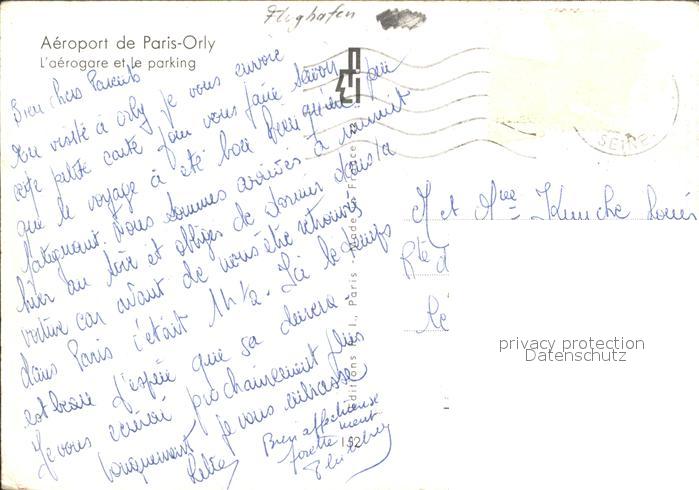 Flughafen
Aéroport de Paris-Orly
L'aérogare et le parking
SEINE
Bien chers Parents
En visite à orly je vous envoie
cette petite carte pour vous faire savoir
que le voyage a été bon bien qu'un peu
fatiguant. Nous sommes arrivés à minuit
hier au soir et obligés de dormir dans la
voiture car avant de nous être retrouvés
dans Paris c'était 1h ½. Ici le temps
est beau j'espère que sa durera.
Je vous écrirai prochainement plus
longuement je vous embrasse
Bien affectueuse
ment
M et Mme
Rte d
privacy protection
Datenschutz
Editions P. I., Paris Made in France
152